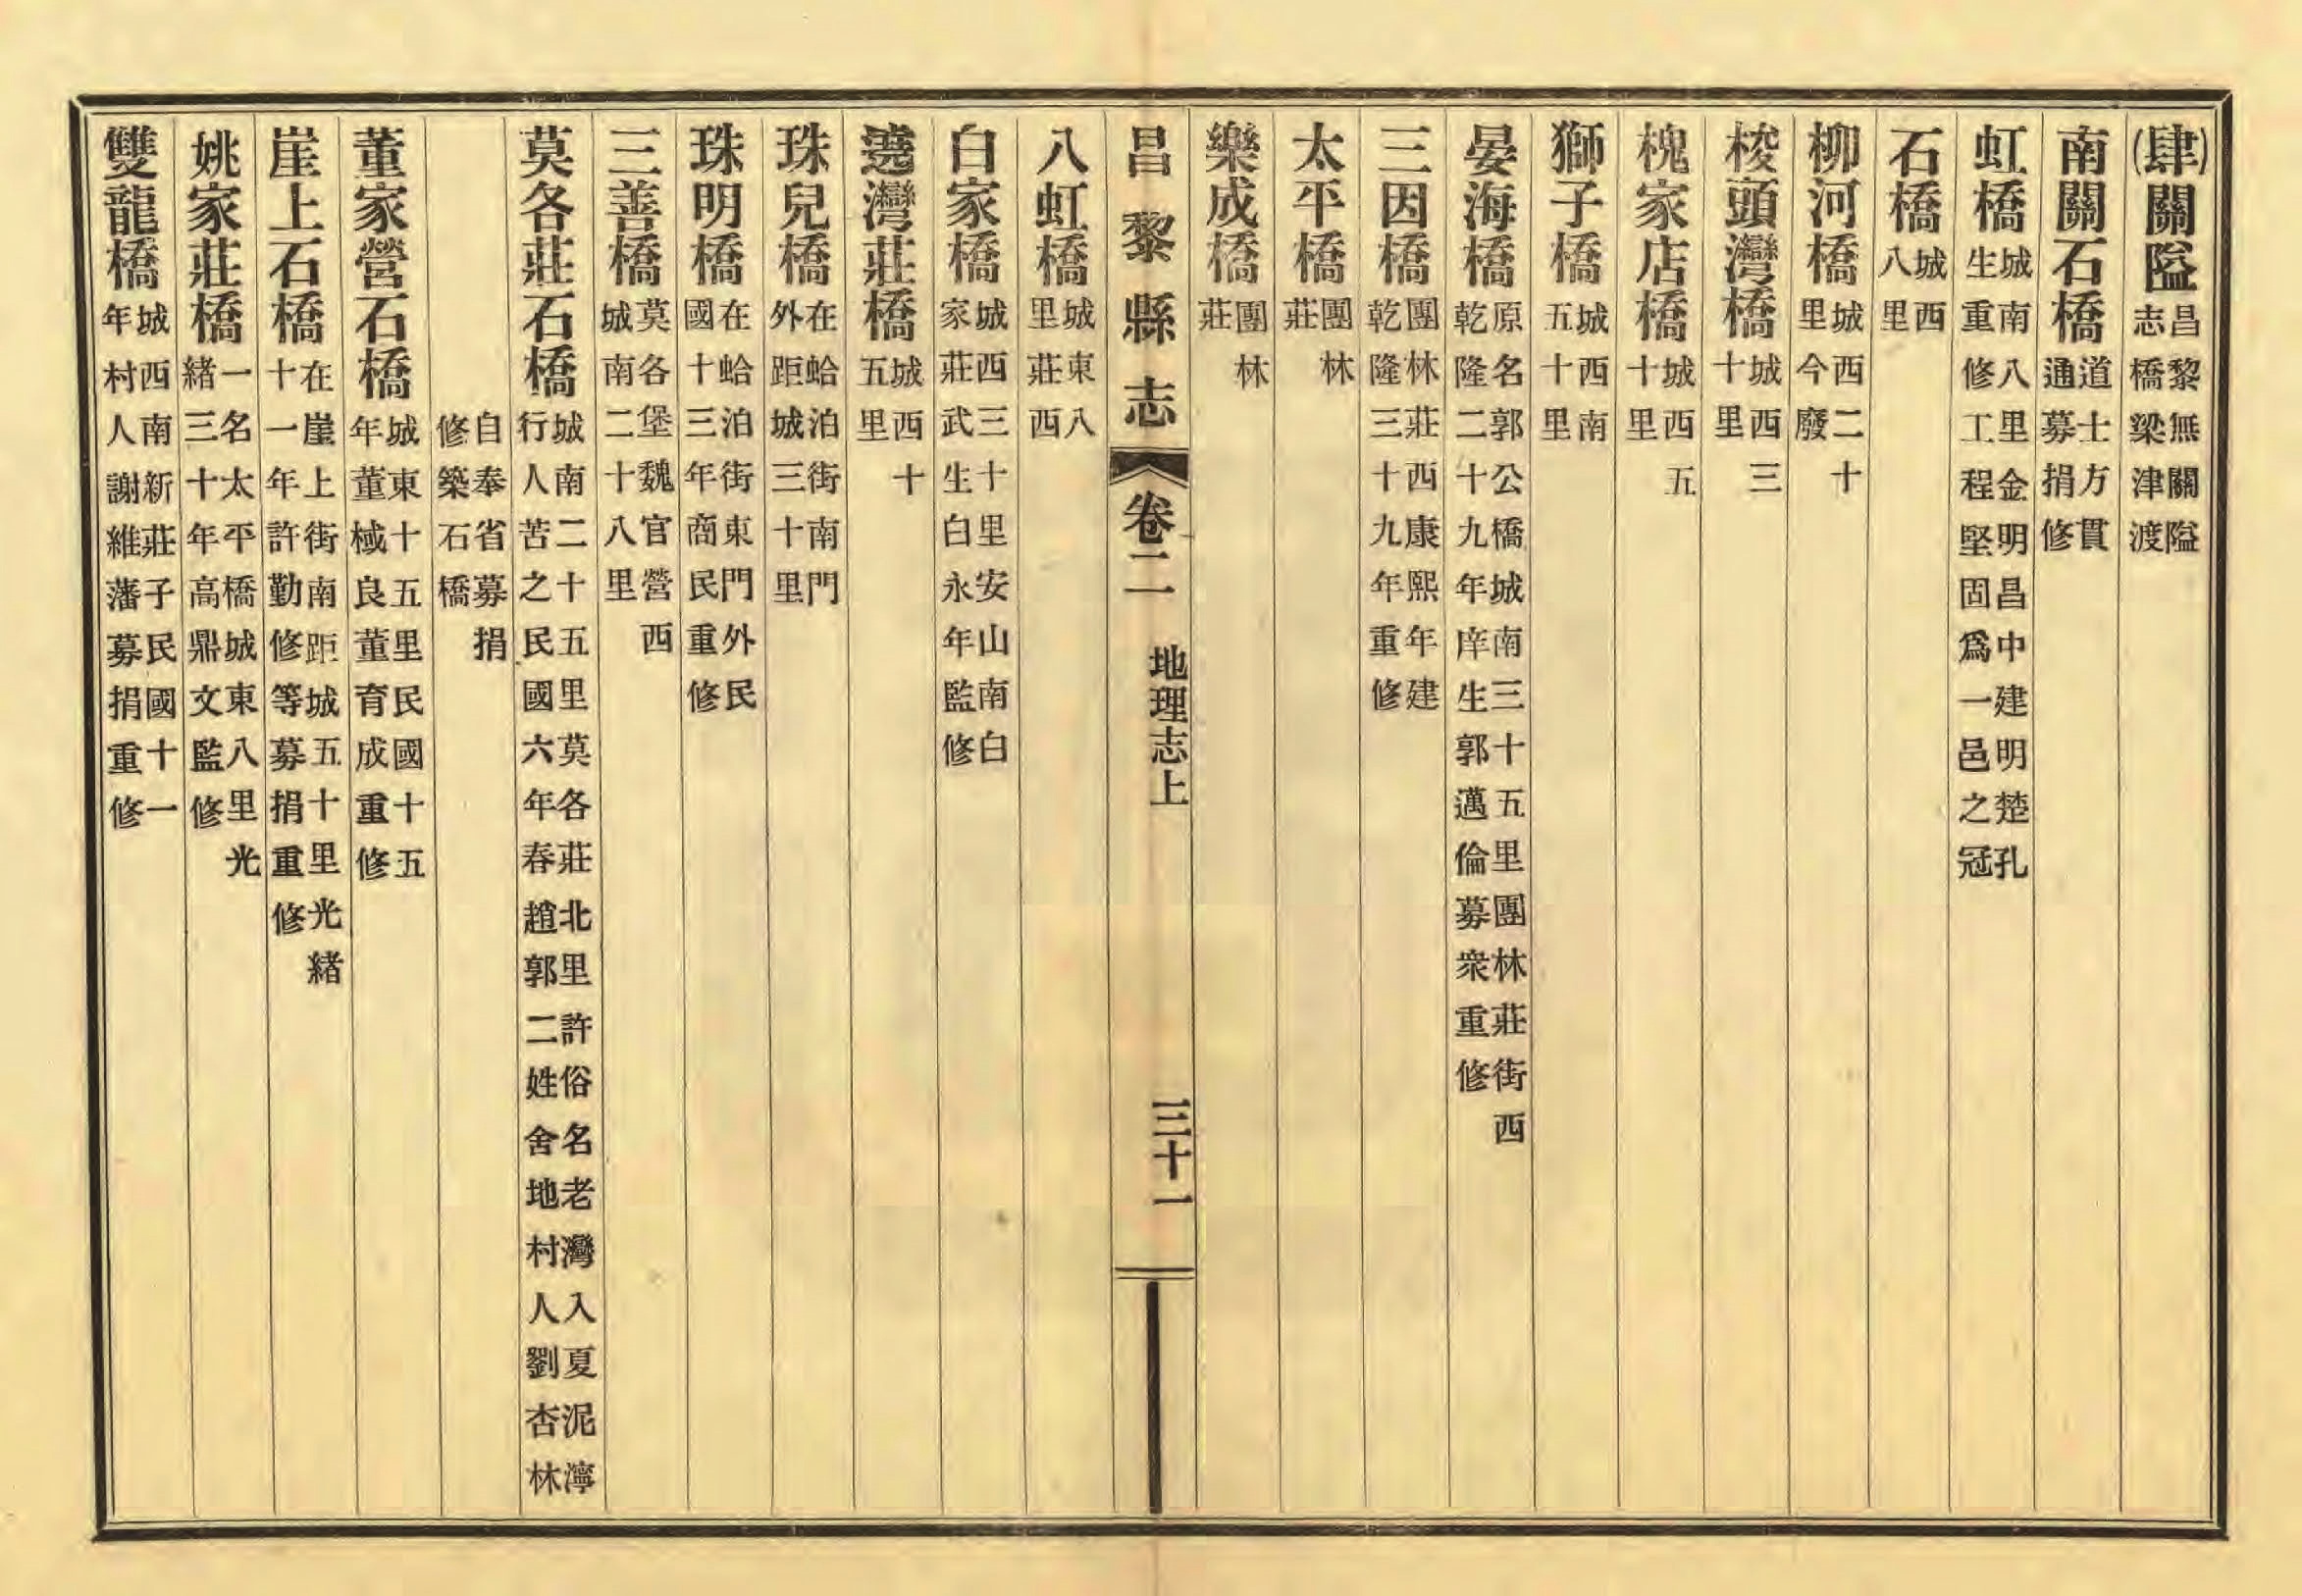 (肆)關隘 昌黎無關隘志橋梁津渡
南關石橋 道士方貫通募捐修
虹橋 城南八里金明昌中建明楚孔生重修工程堅固爲一邑之冠
石橋 城西八里
柳河橋 城西二十里今廢
梭頭灣橋 城西三十里
槐家店橋 城西五十里
獅子橋 城西南五十里
晏海橋 原名郭公橋城南三十五里團林莊街西乾隆二十九年庠生郭邁倫募衆重修
三因橋 團林莊西康熙年建乾隆三十九年重修
太平橋 團林莊
樂成橋 團林莊
昌黎縣志 卷二 地理志上 三十一
八虹橋 城東八里莊西
白家橋 城西三十里安山南白家莊武生白永年監修
遶灣莊橋 城西十五里
珠兒橋 在蛤泊街南門外距城三十里
珠明橋 在蛤泊街東門外民國十三年商民重修
三善橋 莫各堡魏官營西城南二十八里
莫各莊石橋 城南二十五里莫各莊北里許俗名老灣入夏泥濘行人苦之民國六年春趙郭二姓舍地村人劉杏林
自奉省募捐修築石橋
董家營石橋 城東十五里民國十五年董棫良董育成重修
崖上石橋 在崖上街南距城五十里光緒十一年許勤修等募捐重修
姚家莊橋 一名太平橋城東八里光緒三十年高鼎文監修
雙龍橋 城西南新莊子民國十一年村人謝維藩募捐重修